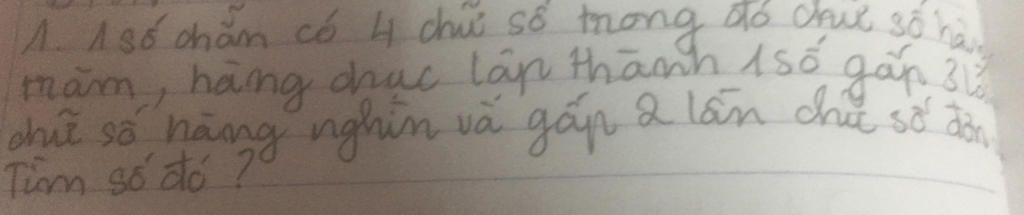 1. 1 số chẵn có 4 chữ số trong đó chữ số hàng
trăm, hàng chục lập thành 1 số gấp 3 lần
chữ số hàng nghìn và gấp 2 lần chữ số đơn
Tìm số đó?